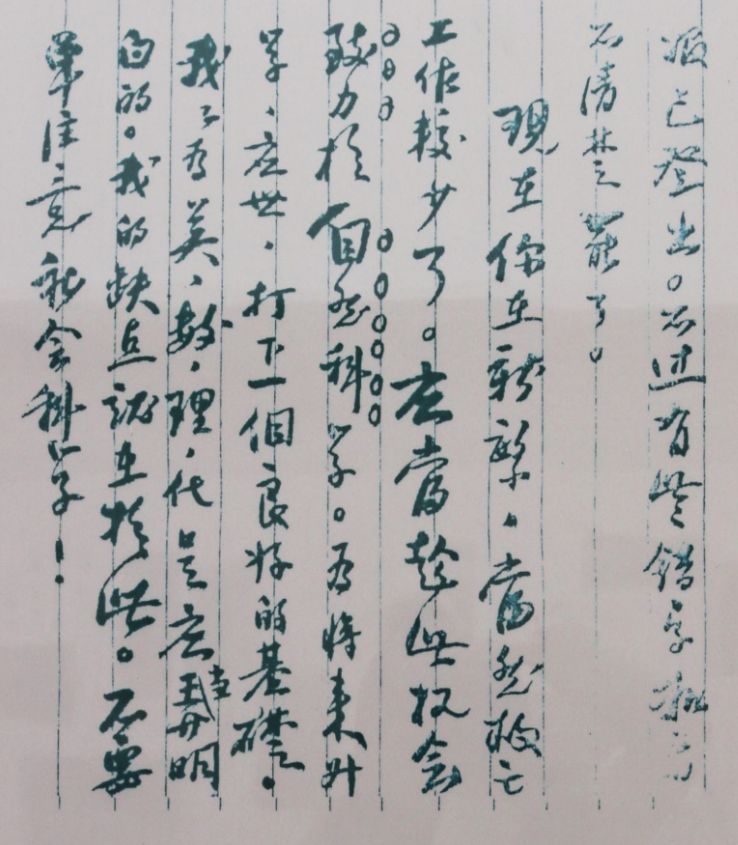 报已登出。不过有些错字
不清楚罷了。
現在你在 ，當然救亡
工作較少了。应當趁此机会
致力於自然科学。為将来升
学、应世，打下一個良好的基礎。
我以为英、数、理、化是应當弄明
白的。我的缺点就在於此。不要
单注意社会科学！